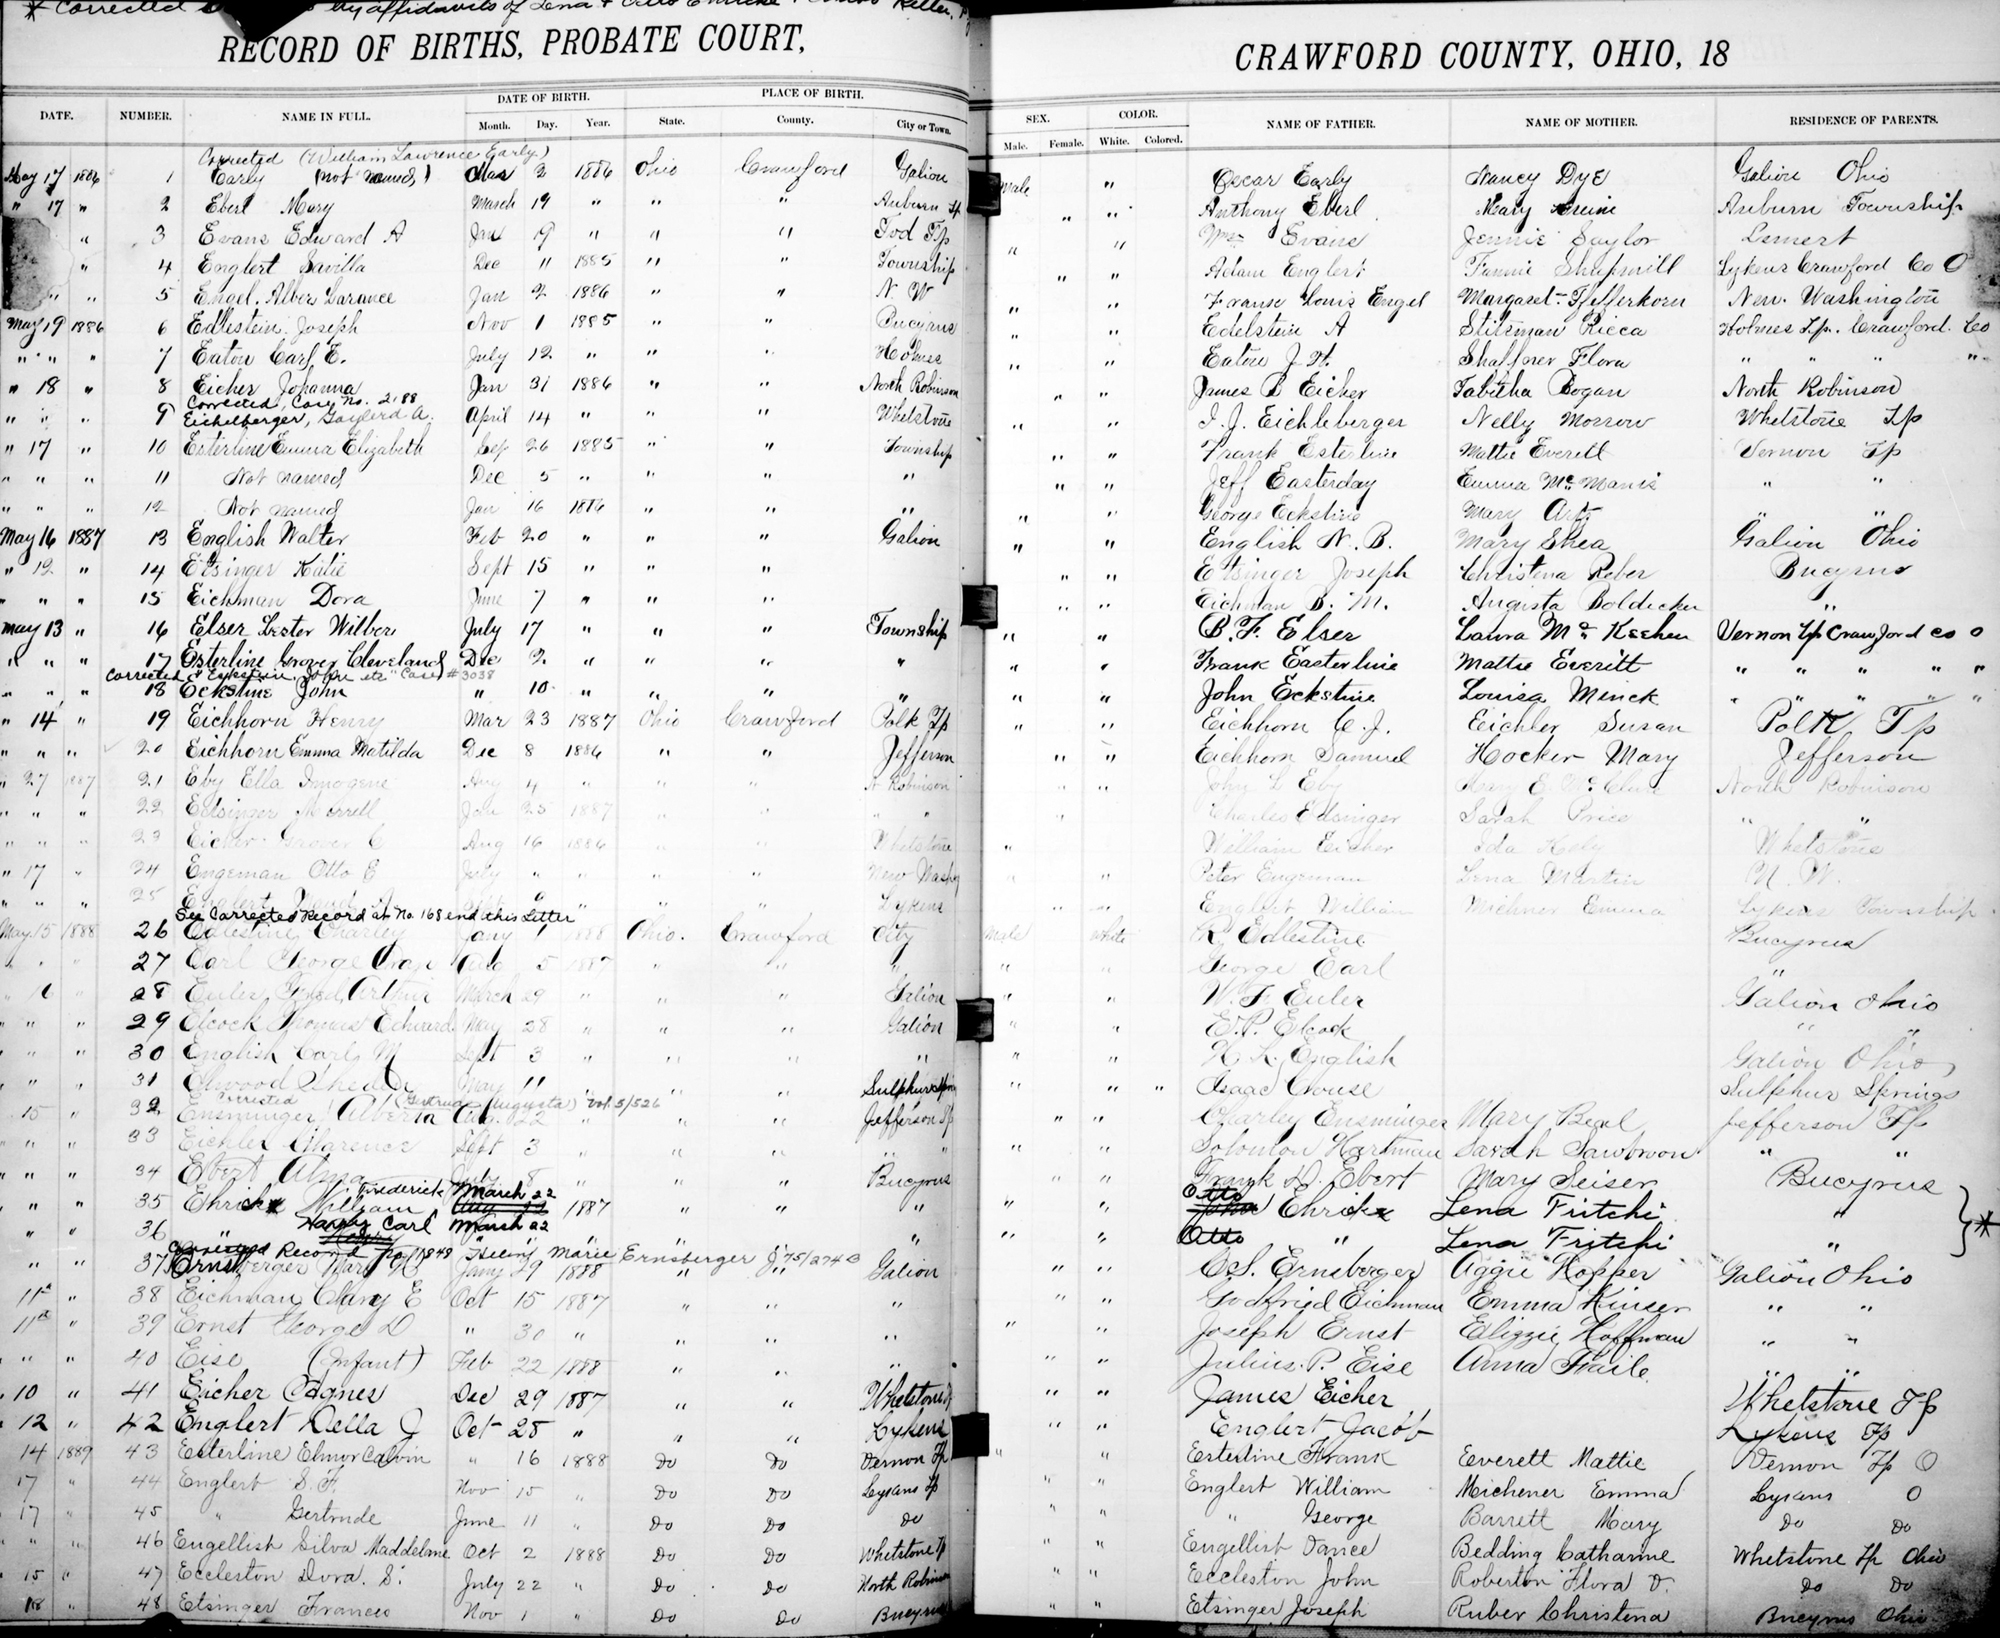 * Corrected by affidavits of Lena + Otto Ehricke + Keller,
RECORD OF BIRTHS, PROBATE COURT, CRAWFORD COUNTY, OHIO, 18
DATE. NUMBER. NAME IN FULL. DATE OF BIRTH. PLACE OF BIRTH. SEX. COLOR. NAME OF FATHER. NAME OF MOTHER. RESIDENCE OF PARENTS.
Month. Day. Year. State. County. City or Town. Male. Female. White. Colored.
Corrected (William Lawrence Early)
May 17 1886 1 Early (not named) Mar 2 1886 Ohio Crawford Galion Male " Oscar Early Nancy Dye Galion Ohio
" 17 " 2 Eberl Mary March 19 " " " Auburn Tp " " Anthony Eberl Mary Auburn Township
" 3 Evans Edward A Jan 19 " " " Tod Tp " " Wm Evans Jennie Saylor Lemert
" 4 Englert Savilla Dec 11 1885 " " Township " " Adam Englert Fannie Lykens Crawford Co O
" " 5 Engel. Alber Larance Jan 2 1886 " " N. W " " Franse Louis Engel Margaret Pfefferkorn New. Washington
May 19 1886 6 Edlestein Joseph Nov 1 1885 " " Bucyrus " " Edelstein A Stitzman Ricca Holmes Tp. Crawford. Co
" " " 7 Eaton Carl E. July 12 " " " Holmes " " Eaton J. H. Shaffner Flora " " " "
" 18 " 8 Eicher Johanna Jan 31 1886 " " North Robinson " " James B Eicher Tabitha Bogan North Robinson
Corrected, Case No. 2188
" " " 9 Eichelberger, Gaylerd A. April 14 " " " Whetstone " " I. J. Eichleberger Nelly Morrow Whetstone Tp
" 17 " 10 Esterline Emma Elizabeth Sep 26 1885 " " Township " " Frank Esterline Mattie Everett Vernon Tp
" " " 11 Not named Dec 5 " " " " " " Jeff Easterday Emma McManis " "
" " " 12 Not named Jan 16 1886 " " " " " George Eckstine Mary Artz " "
May 16 1887 13 English Walter Feb 20 " " " Galion " " English N. B. Mary Shea Galion Ohio
" 12 " 14 Etsinger Katie Sept 15 " " " " " Etsinger Joseph Christena Reber Bucyrus
" " " 15 Eichman Dora June 7 " " " " " Eichman B. M. Augusta Boldecker "
May 13 " 16 Elser Lester Wilber July 17 " " " Township " " B. F. Elser Laura McKeehen Vernon Tp Crawford Co O
" " " 17 Esterline Grover Cleveland Dec 2 " " " " " " Frank Easterline Mattie Everitt " " " " "
Corrected " Eckstein, John etc" Case #3038
" " " 18 Eckstine John " 10 " " " " " " John Eckstine Louisa Menck " " " " "
" 14 " 19 Eichhorn Henry Mar 23 1887 Ohio Crawford Polk Tp " " Eichhorn C. J. Eichler Susan Polk Tp
" " " 20 Eichhorn Emma Matilda Dec 8 1886 " " Jefferson " " Eichhorn Samuel Hocker Mary Jefferson
" 27 1887 21 Eby Ella Imogene Aug 4 " " " N Robinson " " John L Eby Mary E McClure North Robinson
" " " 22 Etsinger Merrell Jan 25 1887 " " " " Charles Etsinger Sarah Price " "
" " " 23 Eicher Grover C Aug 16 1886 " " Whetstone " " William Eicher Ida Whetstone
" 17 " 24 Engeman Otto E July " " " " New Wash " " Peter Engeman Lena Martin N. W.
" " " 25 Englert " " Lykens " " Englert William Michner Emma Lykens Township
See Corrected Record at No. 168 end this Letter
May 15 1888 26 Edlestine Charley Jany 1 1888 Ohio. Crawford City Male White R. Edlestine Bucyrus
" " 27 Earl George 5 1887 " " " " " George Earl "
" 16 " 28 Euler Fred Arthur March 29 " " " Galion " " W. F. Euler Galion Ohio
" " " 29 Elcock Thomas Edward May 28 " " " Galion " " E. P. Elcock " "
" " " 30 English Carl M Sept 3 " " " " " " H. K. English Galion Ohio
" " " 31 Elwood May 11 " " " Sulphur Spring " " " Isaac Crouse Sulphur Springs
Corrected (Gertrude Augusta) Vol. 5/526
" 15 " 32 Ensminger Alberta Aug. 22 " " " Jefferson Tp " " Charley Ensminger Mary Beal Jefferson Tp
" " " 33 Eichler Clarence Sept 3 " " " " " " Solomon Hartman Sarah " "
" " " 34 Ebert Alma July 8 " " " Bucyrus " " Frank D. Ebert Mary Seiser Bucyrus
" " " 35 Ehricke William Frederick March 22 1887 " " " " " Otto Ehricke Lena Fritchi " } *
" " 36 " Harry Carl March 22 " " " " " " Otto " Lena Fritchi "
Corrected Record No. 1848 Helen Marie Ernsberger J 75/274 B
" " 37 Ernsberger Mary Jany 29 1888 " " Galion " " C. S. Ernsberger Aggie Hopper Galion Ohio
11th " 38 Eichman Clary E Oct 15 1887 " " " " " Godfried Eichman Emma Kinser " "
11th " 39 Ernst George D " 30 " " " " " " Joseph Ernst Elizzie Hoffman " "
" " 40 Eise (Infant) Feb 22 1888 " " " " " Julius P. Eise Anna Haile " "
" 10 " 41 Eicher Agnes Dec 29 1887 " " Whetstone Tp " " James Eicher Whetstone Tp
" 12 " 42 Englert Della J Oct 25 " " " Lykens " " Englert Jacob Lykens Tp
" 14 1889 43 Esterline Elmor Calvin " 16 1888 Do Do Vernon Tp " " Esterline Frank Everett Mattie Vernon Tp O
17 " 44 Englert S. F. Nov 15 " Do Do Lykans Tp " " Englert William Michener Emma Lykans O
17 " 45 " Gertrude June 11 " Do Do Do " " " George Barrett Mary Do Do
" " 46 Engellist Silva Maddeline Oct 2 1888 Do Do Whetstone Tp " " Engellist Vance Bedding Catharine Whetstone Tp Ohio
15 " 47 Eccleston Dora. S. July 22 " Do Do North Robinson " " Eccleston John Roberton Flora D. Do Do
18 " 48 Etsinger Frances Nov 1 " Do Do Bucyrus " " Etsinger Joseph Ruber Christena Bucyrus Ohio